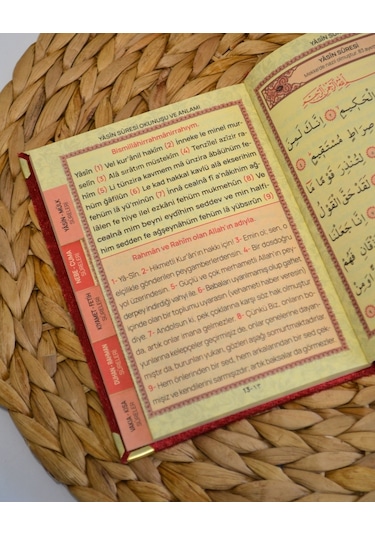 YÂSİN SÛRESİ OKUNUŞU VE ANLAMI
Bismillâhirrahmânirrahîym.
Yâsîn (1) Vel kur'ânil hakîm (2) İnneke le minel mur-
selîn (3) Alâ sırâtım müstekîm (4) Tenzîlel azîzir ra-
hîym (5) Li tünzira kavmem mâ ünzira âbâühüm fe-
hüm ğâfilûn (6) Le kad hakkal kavlü alâ ekserihim
fehüm lâ yü'minûn (7) İnnâ cealnâ fî a'nâkıhim ağ-
lâlen fe hiye ilel ezkâni fehüm mukmehûn (8) Ve
cealnâ mim beyni eydîhim sedden ve min halfi-
him sedden fe ağşeynâhüm fehüm lâ yübsırûn (9)
Rahmân ve Rahîm olan Allah'ın adıyla.
1- Yâ-Sîn, 2- Hikmetli Kur'ân'ın hakkı için! 3- Emin ol, sen, o
elçilikle gönderilen peygamberlerdensin. 4- Bir dosdoğru
yol üzerindesin! 5- Güçlü ve çok merhametli Allah'ın pey-
derpey indirdiği vahyile. 6- Babaları uyarılmamış olup gaflet
içinde olan bir toplumu uyarasın (vehameti haber veresin)
diye. 7- Andolsun ki, pek çoklarına karşı söz hak olmuştur
da, artık onlar imana gelmezler. 8- Çünkü Biz, onların bo-
yunlarına kelepçeler geçirmişiz de, onlar çenelerine dayan-
mıştır da, burunları yukarı, gözleri aşağı somurtmaktadırlar.
9- Hem önlerinden bir sed, hem arkalarından bir sed çek-
mişiz ve kendilerini sarmışızdır, artık baksalar da görmezler
13-12
YÂSİN-MÜLK
SÛRELERİ
NEBE-CUMA
SÛRELERİ
KIYAMET-FETİH
SÛRELERİ
DUHAN-RAHMAN
SÛRELERİ
VAKIA-KISA
SÛRELER
YÂSÎN SÛRESİ
YÂSÎN SÛRESİ